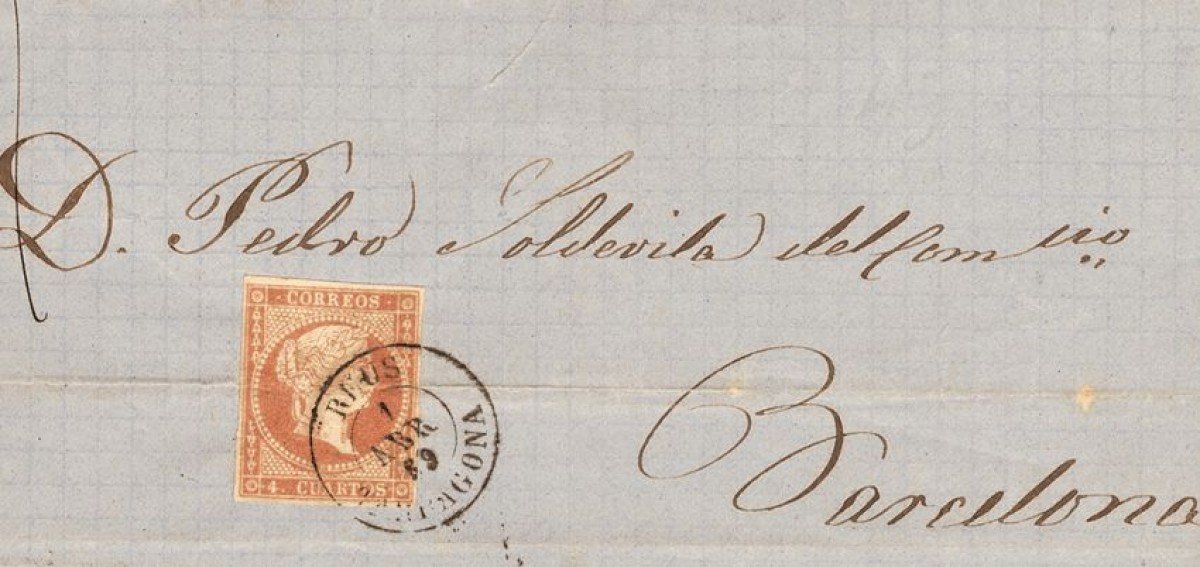 D. Pedro Soldevila del Com.cio
CORREOS
REUS
1
ABR
69
TARRAGONA
4. CUARTOS
Barcelona